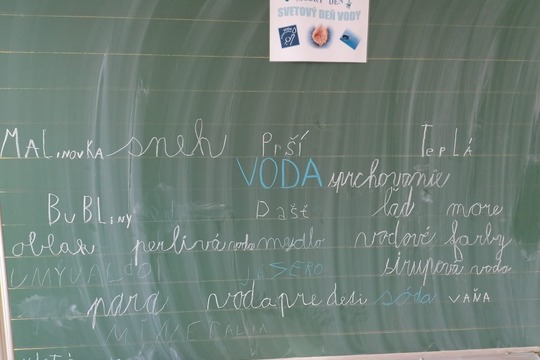 SVETOVÝ DEŇ VODY
MALINOVKA sneh Prší TEPLÁ
VODA sprchovanie
BUBLINY Dašť ľad more
oblak perlivá voda mydlo vodové farby
UMÝVADLO JASERO sirupová voda
para voda pre deti sóda VAŇA